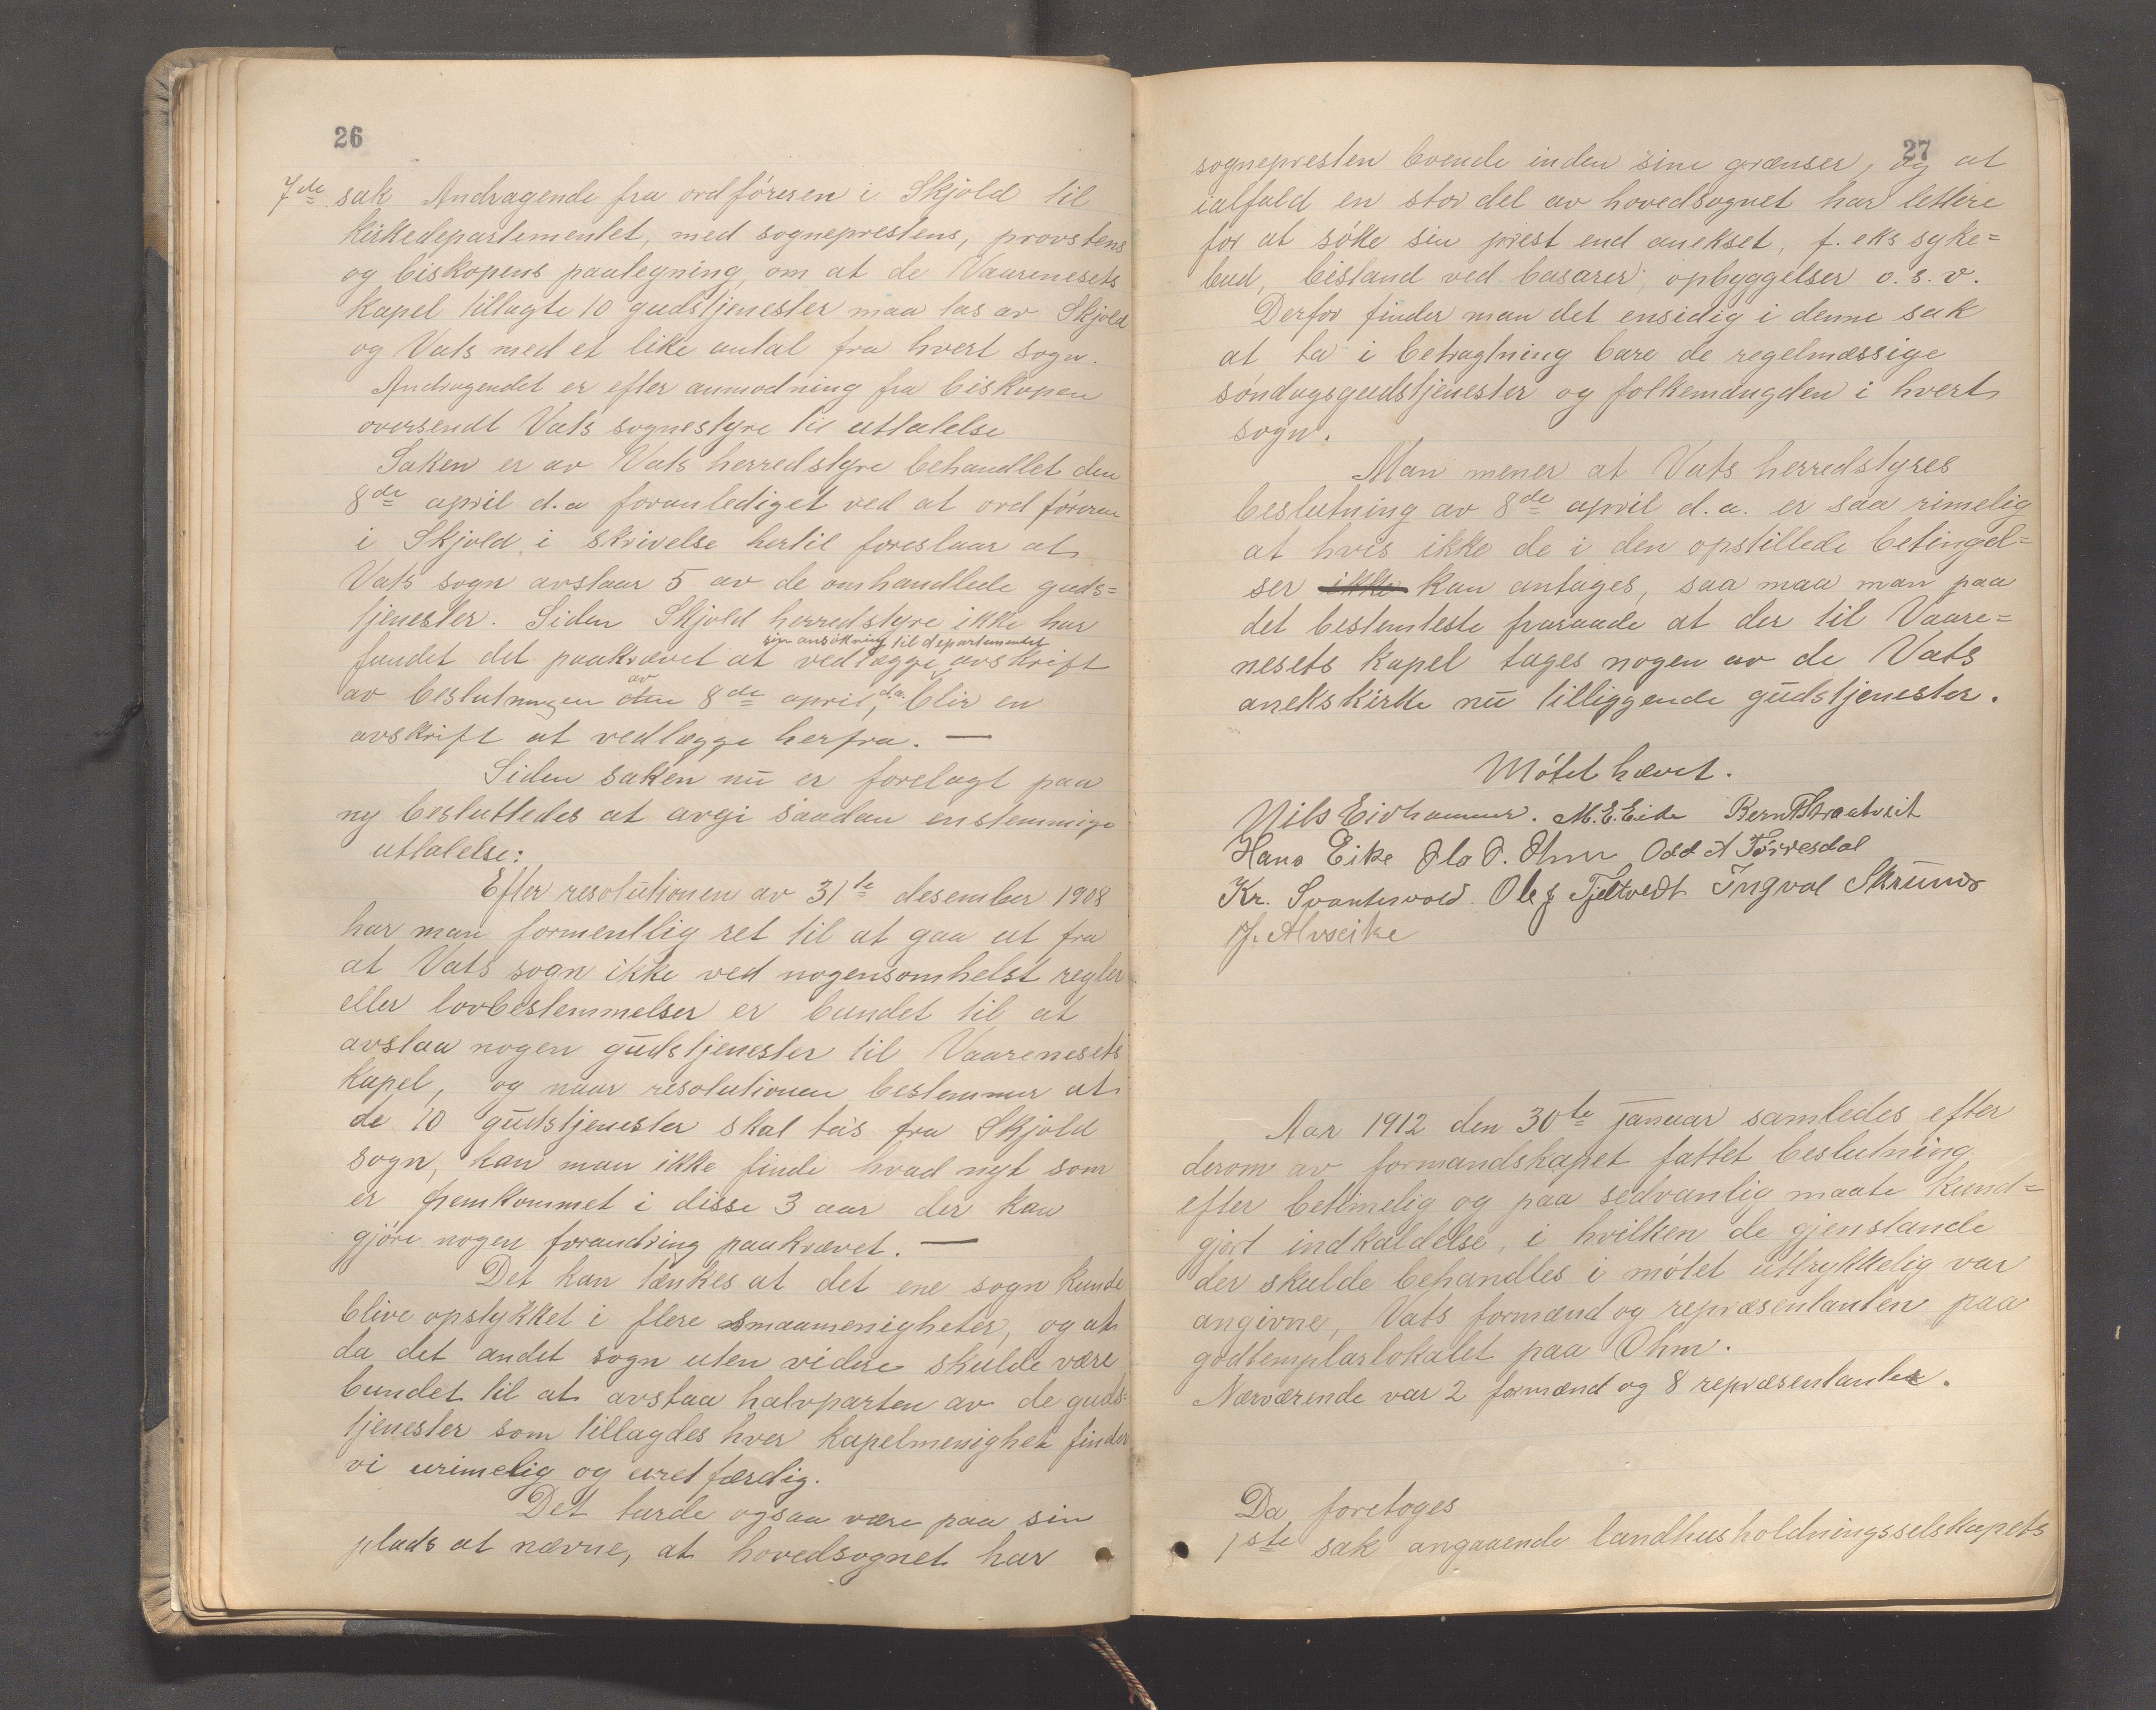 26
7de sak Andragende fra ordføreren i Skjold til
kirkedepartementet, med sogneprestens, provstens
og biskopens paategning, om at de Vaarenesets
kapel tillagte 10 gudstjenester maa tas av Skjold
og Vats med et like antal fra hvert sogn.
Andragendet er efter anmodning fra biskopen
oversendt Vats sognestyre til uttalelse
Saken er av Vats herredstyre behandlet den
8de april d.a foranlediget ved at ordføreren
i Skjold i skrivelse hertil foreslaar at
Vats sogn avstaar 5 av de omhandlede guds=
tjenester. Siden Skjold herredstyre ikke har
sin ansøkning til departementet
fundet det paakrævet at vedlægge avskrift
av beslutningen av 8de april d.a. blir en
avskrift at vedlægge herfra. —
Siden saken nu er forelagt paa
ny besluttedes at avgi saadan enstemmige
uttalelse:
Efter resolutionen av 31te desember 1908
har man formentlig ret til at gaa ut fra
at Vats sogn ikke ved nogensomhelst regler
eller lovbestemmelser er bundet til at
avstaa nogen gudstjenester til Vaarenesets
kapel, og naar resolutionen bestemmer at
de 10 gudstjenester skal tas fra Skjold
sogn, kan man ikke finde hvad nyt som
er fremkommet i disse 3 aar der kan
gjøre nogen forandring paakrævet. —
Det kan tænkes at det ene sogn kunde
blive opstykket i flere smaamenigheter, og at
da det andet sogn uten videre skulde være
bundet til at avstaa halvparten av de guds-
tjenester som tillagdes hver kapelmenighet finder
vi urimelig og uretfærdig.
Det turde ogsaa være paa sin
plads at nævne, at hovedsognet har
27
sognepresten boende inden sine grænser, og at
ialfald en stor del av hovedsognet har lettere
for at søke sin prest end anekset, f. eks syke=
bud, bistand ved basarer, opbyggelser o. s. v.
Derfor finder man det ensidig i denne sak
at ta i betragtning bare de regelmæssige
søndagsgudstjenester og folkemængden i hvert
sogn.
Man mener at Vats herredstyres
beslutning av 8de april d.a. er saa rimelig
at hvis ikke de i den opstillede betingel=
ser ikke kan antages, saa maa man paa
det bestemteste fraraade at der til Vaare=
nesets kapel tages nogen av de Vats
anekskirke nu tilliggende gudstjenester.
Møtet hævet.
Nils Eidhammer. M. E. Eide Bernt Straatveit
Hans Eike Ola O. Ohm Odd A Tørresdal
Kr. Svantesvold. Ole J Tjeltvedt Ingval Skrunes
J. Alvseike
Aar 1912 den 30te januar samledes efter
derom av formandskapet fattet beslutning
efter betimelig og paa sedvanlig maate kund=
gjort indkaldelse, i hvilken de gjenstande
der skulde behandles i møtet uttrykkelig var
angivne, Vats formænd og repræsentanten paa
godtemplarlokalet paa Ohm.
Nærværende var 2 formænd og 8 repræsentanter.
Da foretoges
1ste sak angaaende landhusholdningsselskapets